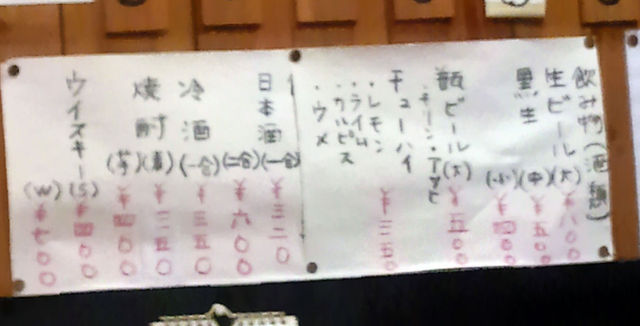 飲み物(酒類)
生ビール(大) ¥八〇〇
(中) ¥五〇〇
黒生(小) ¥四〇〇
瓶ビール(大) ¥五〇〇
・アサヒ
チューハイ ¥三五〇
・レモン
・ライム
・カルピス
・ウメ
日本酒(一合) ¥三二〇
(二合) ¥六〇〇
冷酒(一合) ¥三五〇
焼酎(麦)
(芋) ¥四〇〇
ウイスキー(S) ¥四〇〇
(W) ¥七〇〇